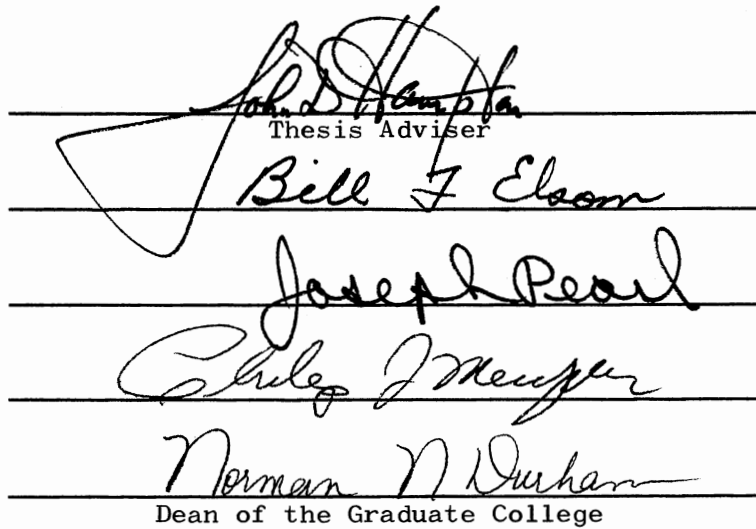 John D Hampton
Thesis Adviser
Bill F Elsom
Joseph Pearl
J
Norman N Durham
Dean of the Graduate College